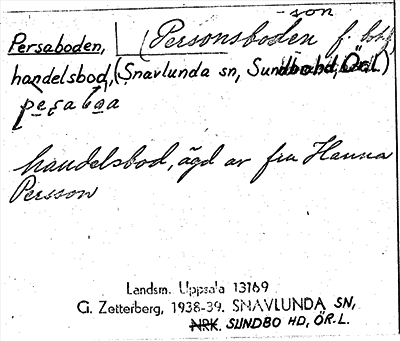 -son
Persaboden, (Personsboden f. bok)
handelsbod, (Snavlunda sn, Sundbohd, Ör.l.)
handelsbod, ägd av fru Hanna
Persson
Landsm. Uppsala 13169
G. Zetterberg, 1938-39. SNAVLUNDA SN,
NRK. SUNDBO HD, ÖR.L.